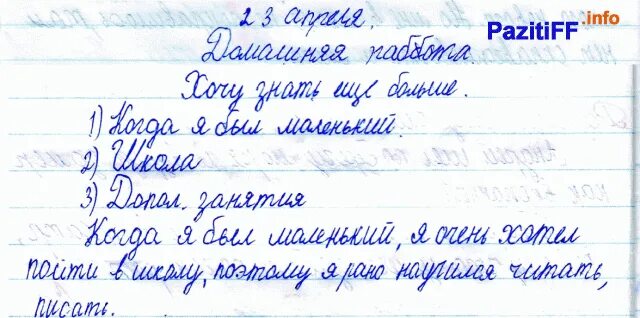 23 апреля.
PazitiFF.info
Домашняя раббота
Хочу знать еще больше.
1) Когда я был маленький.
2) Школа
3) Допол. занятия
Когда я был маленький, я очень хотел
пойти в школу, поэтому я рано научился читать,
писать.